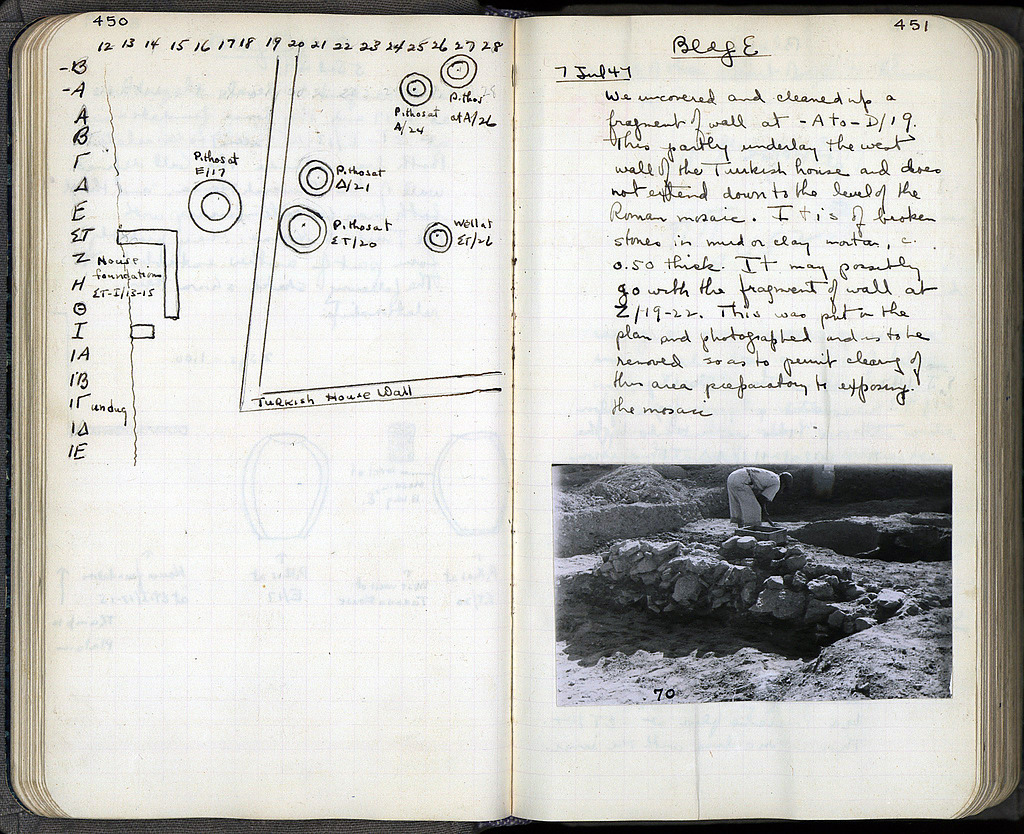 450
12 13 14 15 16 17 18 19 20 21 22 23 24 25 26 27 28
-B
-A
A
B
Γ
Δ
E
ΣΤ
Z
H
Θ
I
IA
IB
IΓ undug
IΔ
IE
Pithos at
A/24
Pithos
at A/26
Pithos at
E/17
Pithos at
Δ/21
Pithos at
ΣΤ/20
Well at
ΣΤ/26
House
foundation
ΣΤ-I/13-15
Turkish House Wall
451
Bldg E
7 Jul 47
We uncovered and cleaned up a
fragment of wall at -A to -D/19.
This partly underlay the west
wall of the Turkish house and does
not extend down to the level of the
Roman mosaic. It is of broken
stones in mud or clay mortar, c.
0.50 thick. It may possibly
go with the fragment of wall at
Z/19-22. This was put on the
plan and photographed and is to be
removed so as to permit clearing of
this area preparatory to exposing
the mosaic
70